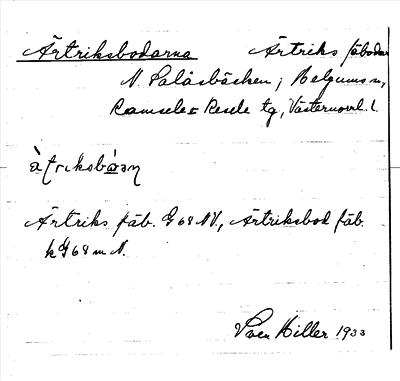 Ärtriksbodarna Ärtriks fäbodar
N. Salåsbäcken, Helgums sn,
Ramsele & Resele tg, Västernorrl. l.
àtriksbóɑn
Ärtriks fäb. G 68 NV, Ärtriksbod fäb.
k G 68 m N.
Sven Hiller 1933